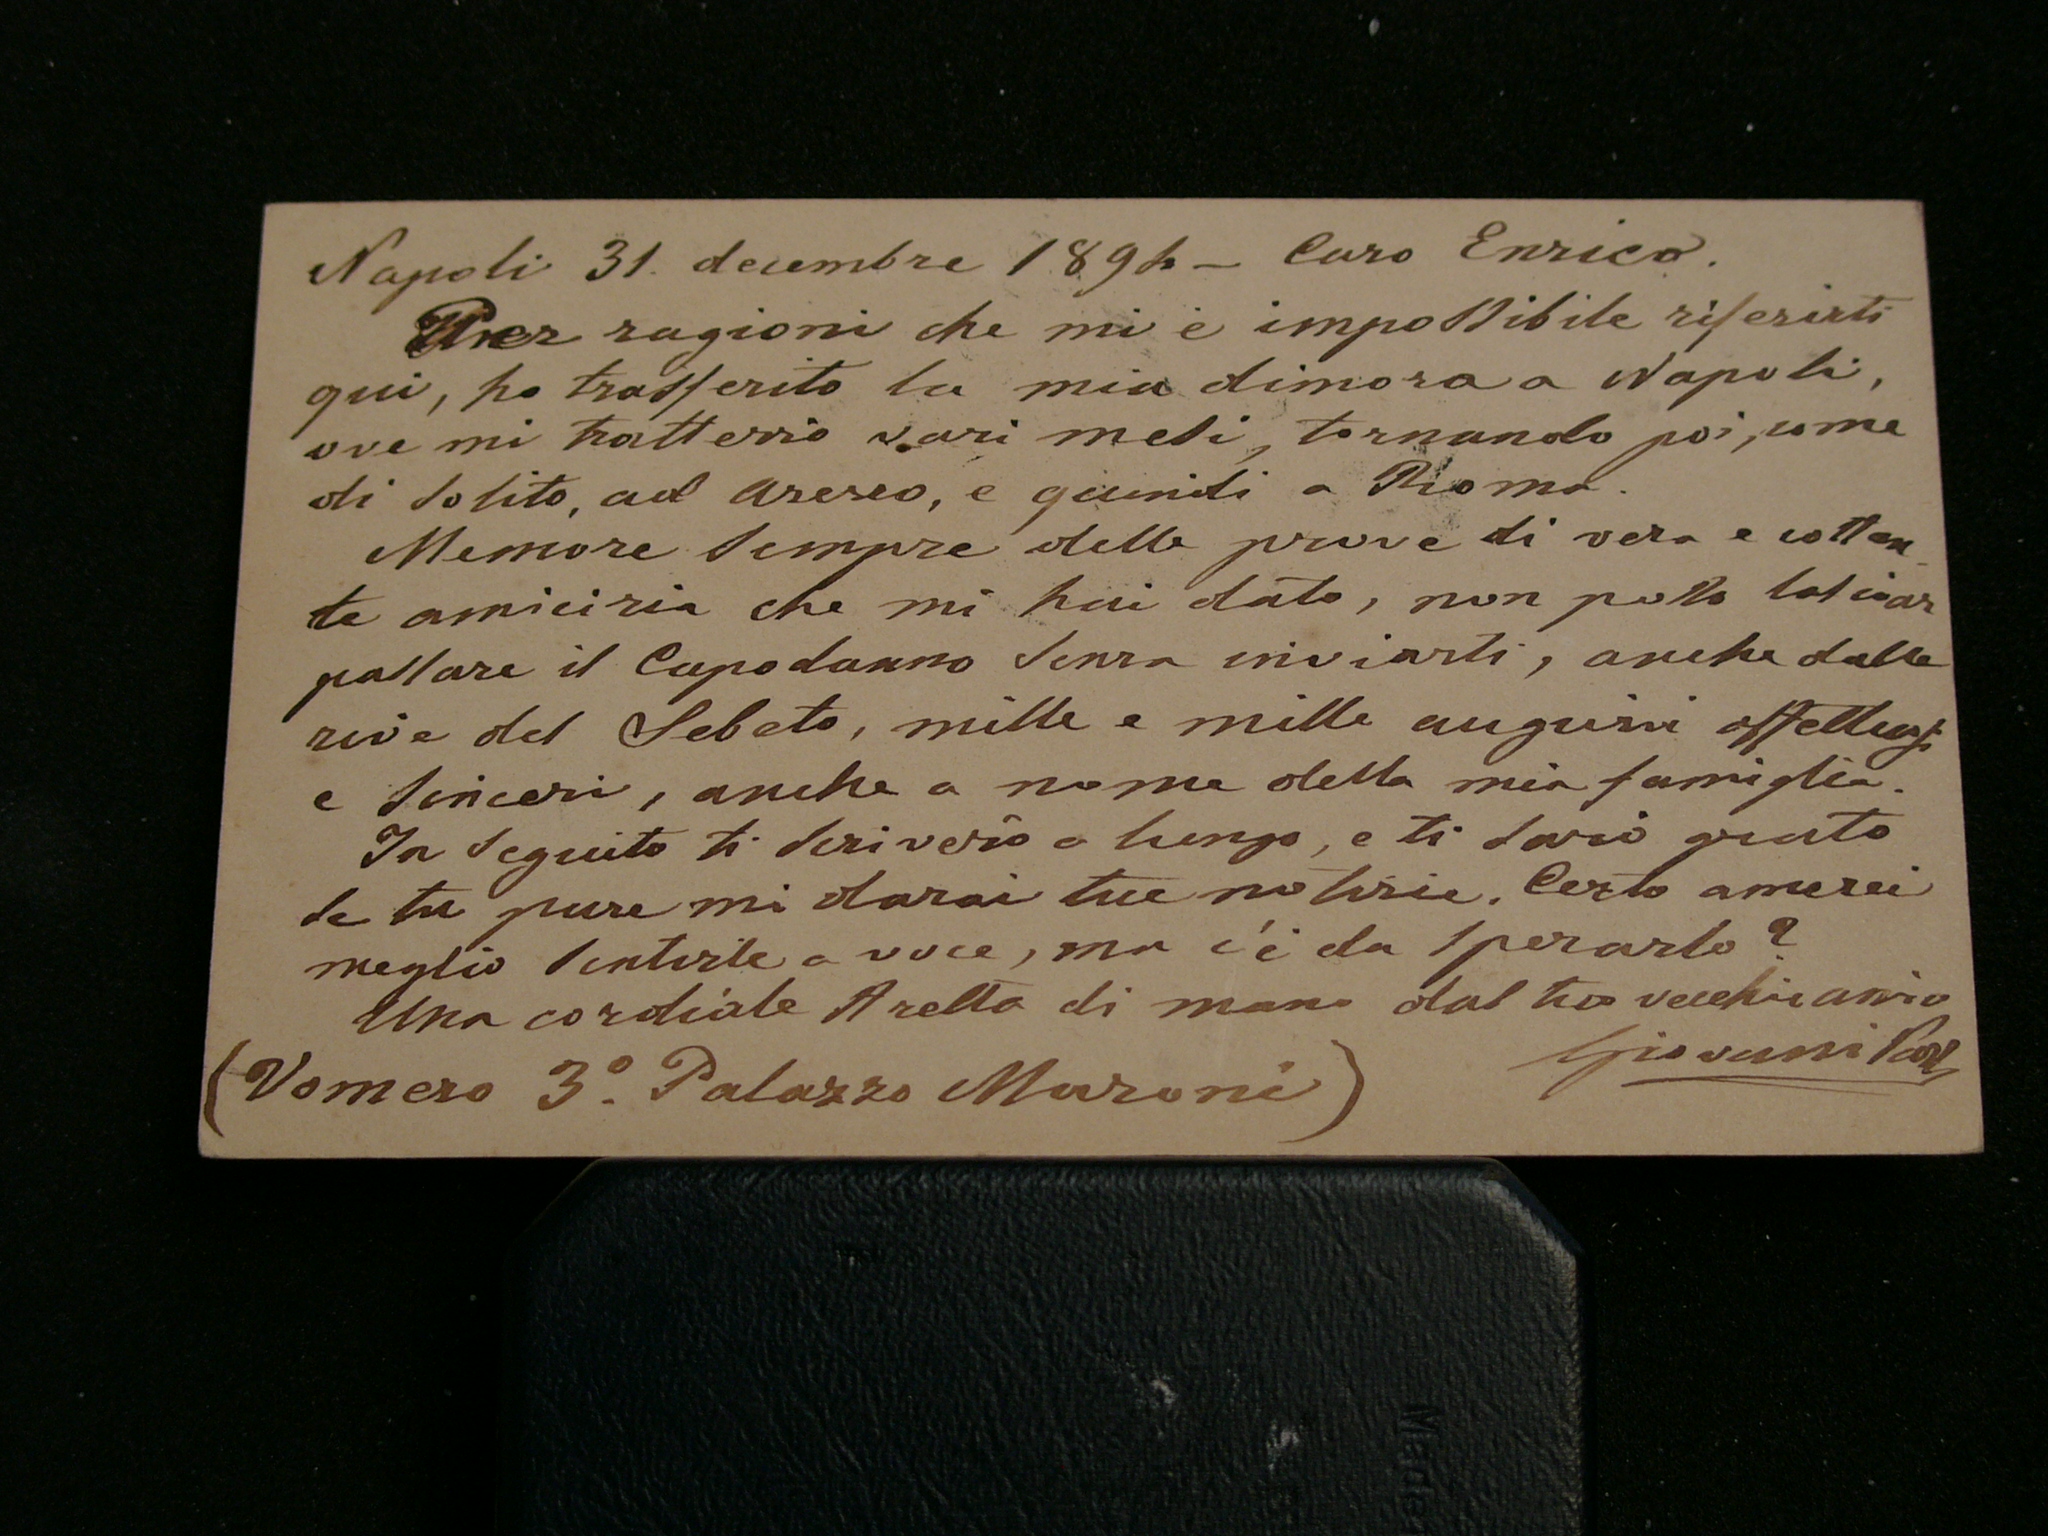 Napoli 31. decembre 1894 - Caro Enrico.
Per ragioni che mi è impossibile riferirti
qui, ho trasferito la mia dimora a Napoli,
ove mi tratterrò vari mesi, tornando poi, come
di solito, ad Arezzo, e quindi a Roma.
Memore sempre delle prove di vera e costan-
te amicizia che mi hai dato, non posso lasciar
passare il Capodanno senza inviarti, anche dalle
rive del Sebeto, mille e mille auguri affettuosi
e sinceri, anche a nome della mia famiglia.
In seguito ti scriverò a lungo, e ti sarò grato
se tu pure mi darai tue notizie. Certo amerei
meglio sentirle a voce, ma c'è da sperarlo?
Una cordiale stretta di mano dal tuo vecchio amico
Giovanni
(Vomero 3º. Palazzo Maroni)
Made